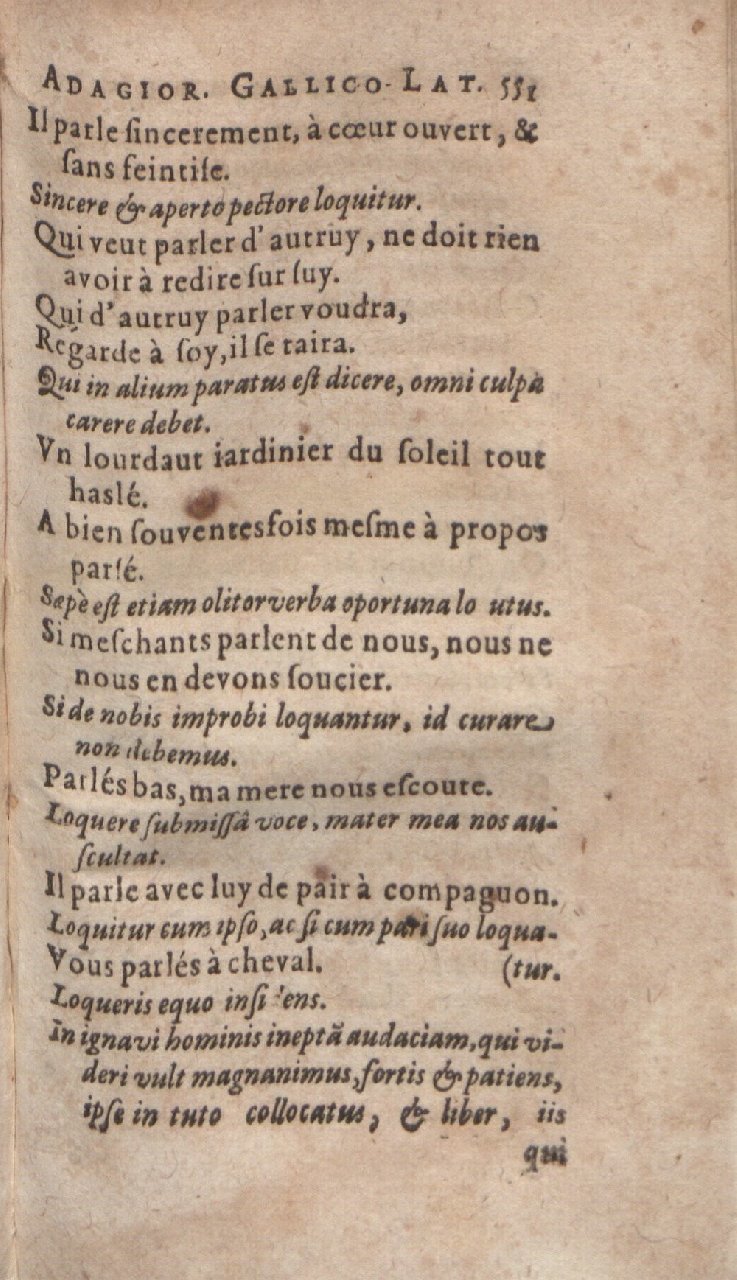 ADAGIOR. GALLICO-LAT. 551
Il parle ſincerement, à cœur ouvert, &
ſans feintiſe.
Sincere & aperto pectore loquitur.
Qui veut parler d'autruy, ne doit rien
avoir à redire ſur ſuy.
Qui d'autruy parler voudra,
Regarde à ſoy, il ſe taira.
Qui in alium paratus eſt dicere, omni culpâ
carere debet.
Vn lourdaut iardinier du ſoleil tout
haslé.
A bien ſouventesfois meſme à propos
parlé.
Sæpè eſt etiam olitor verba oportuna lo utus.
Si meſchants parlent de nous, nous ne
nous en devons ſoucier.
Si de nobis improbi loquantur, id curare
non debemus.
Parlés bas, ma mere nous eſcoute.
Loquere ſubmiſſâ voce, mater mea nos au-
ſcultat.
Il parle avec luy de pair à compaguon.
Loquitur cum ipſo, ac ſi cum pari ſuo loqua-
Vous parlés à cheval. (tur.
Loqueris equo inſi ens.
In ignavi hominis ineptã audaciam, qui vi-
deri vult magnanimus, fortis & patiens,
ipſe in tuto collocatus, & liber, iis
qui